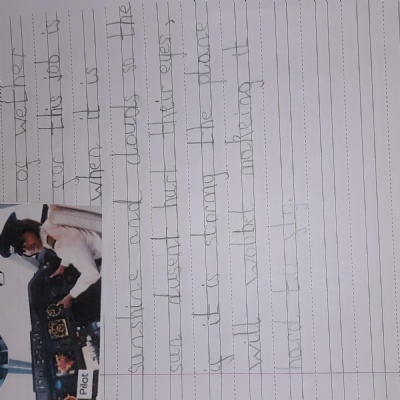 of wether
or this job is
when it is
Pilot
sunshine and clouds so the
sun dusent hurt their eyes,
if it is stormy the plane
will wobbel makeing it
hard to fly.